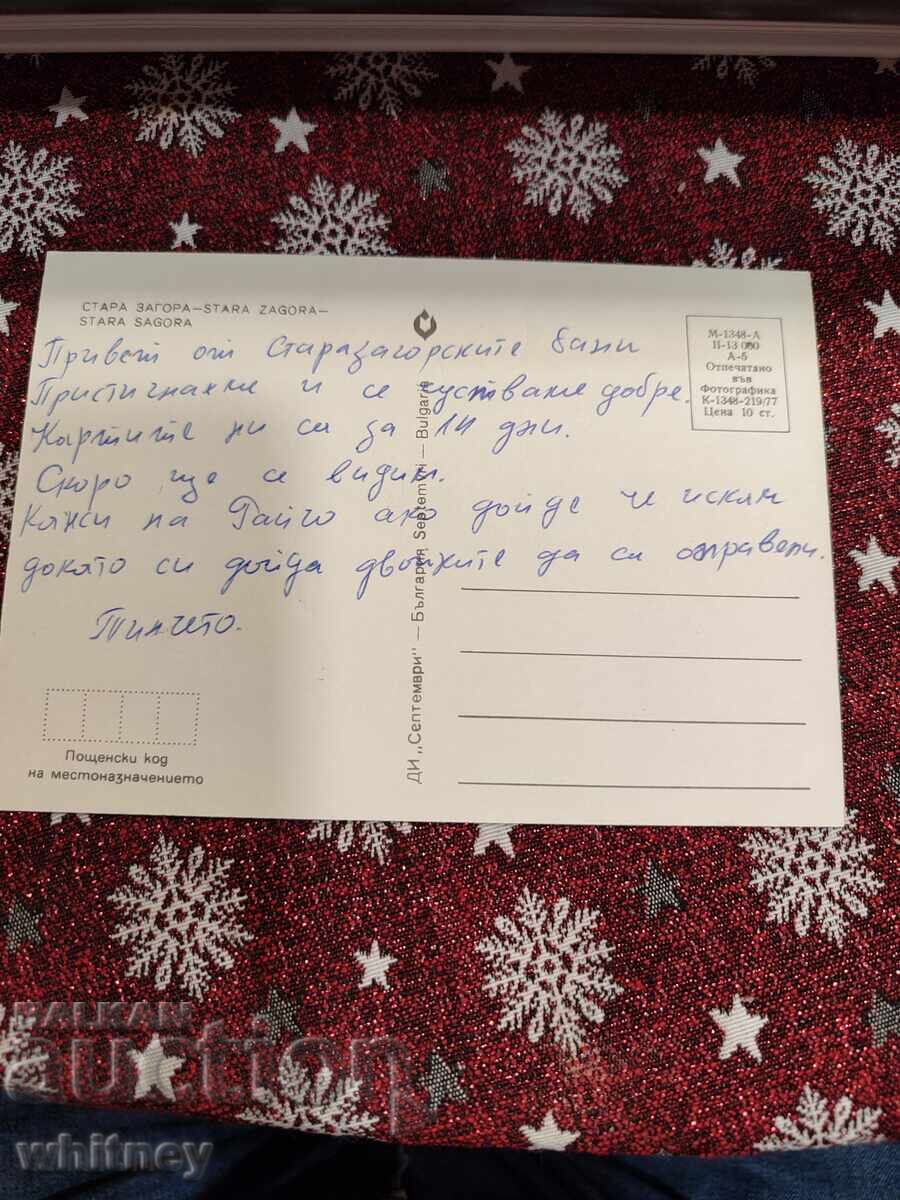 СТАРА ЗАГОРА—STARA ZAGORA—
STARA SAGORA
М-1348-А
II-13 000
А-5
Отпечатано
във
Фотографика
К-1348-219/77
Цена 10 ст.
Привет от Старазагорските бани
Пристигнахме и се чустваме добре.
Картите ни са за 14 дни.
Скоро ще се видим.
Кажи на Гайчо ако дойде че искам
докато си дойда двойките да са оправени.
Пипчето.
ДИ „Септември" — България Septemvri — Bulgarie
Пощенски код
на местоназначението
BALKAN
auction
whitney